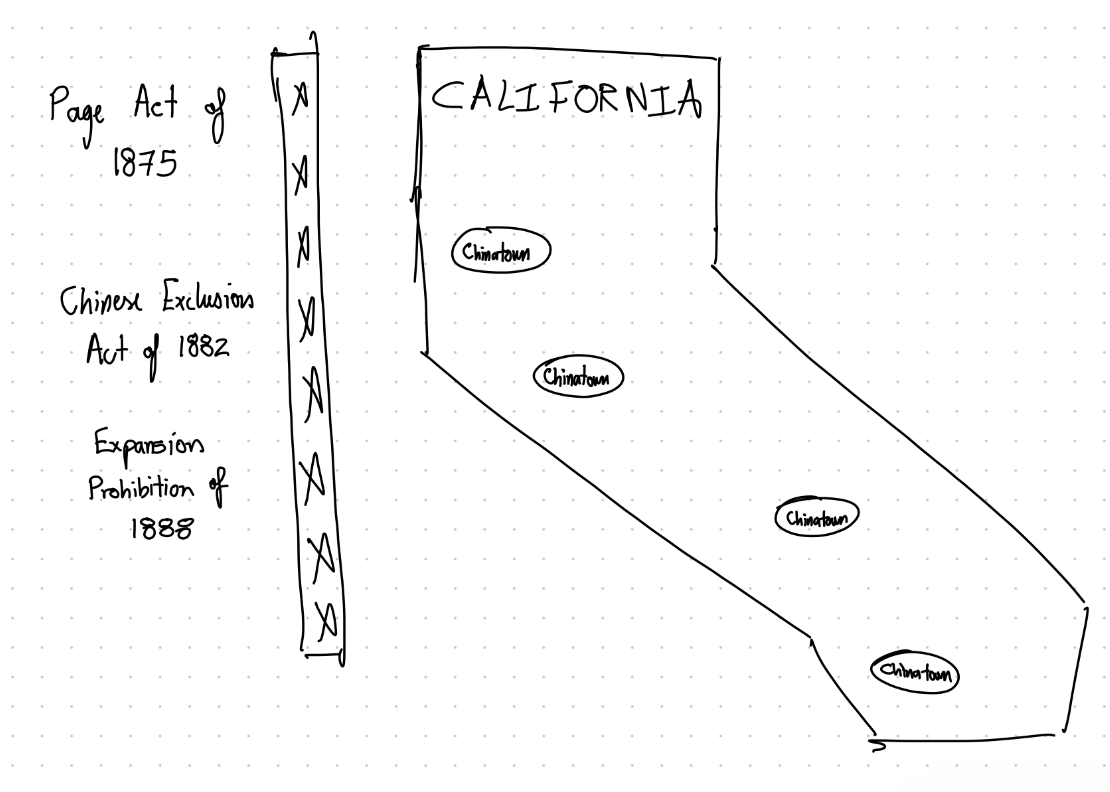 Page Act of
1875
Chinese Exclusion
Act of 1882
Expansion
Prohibition of
1888
CALIFORNIA
Chinatown
Chinatown
Chinatown
Chinatown